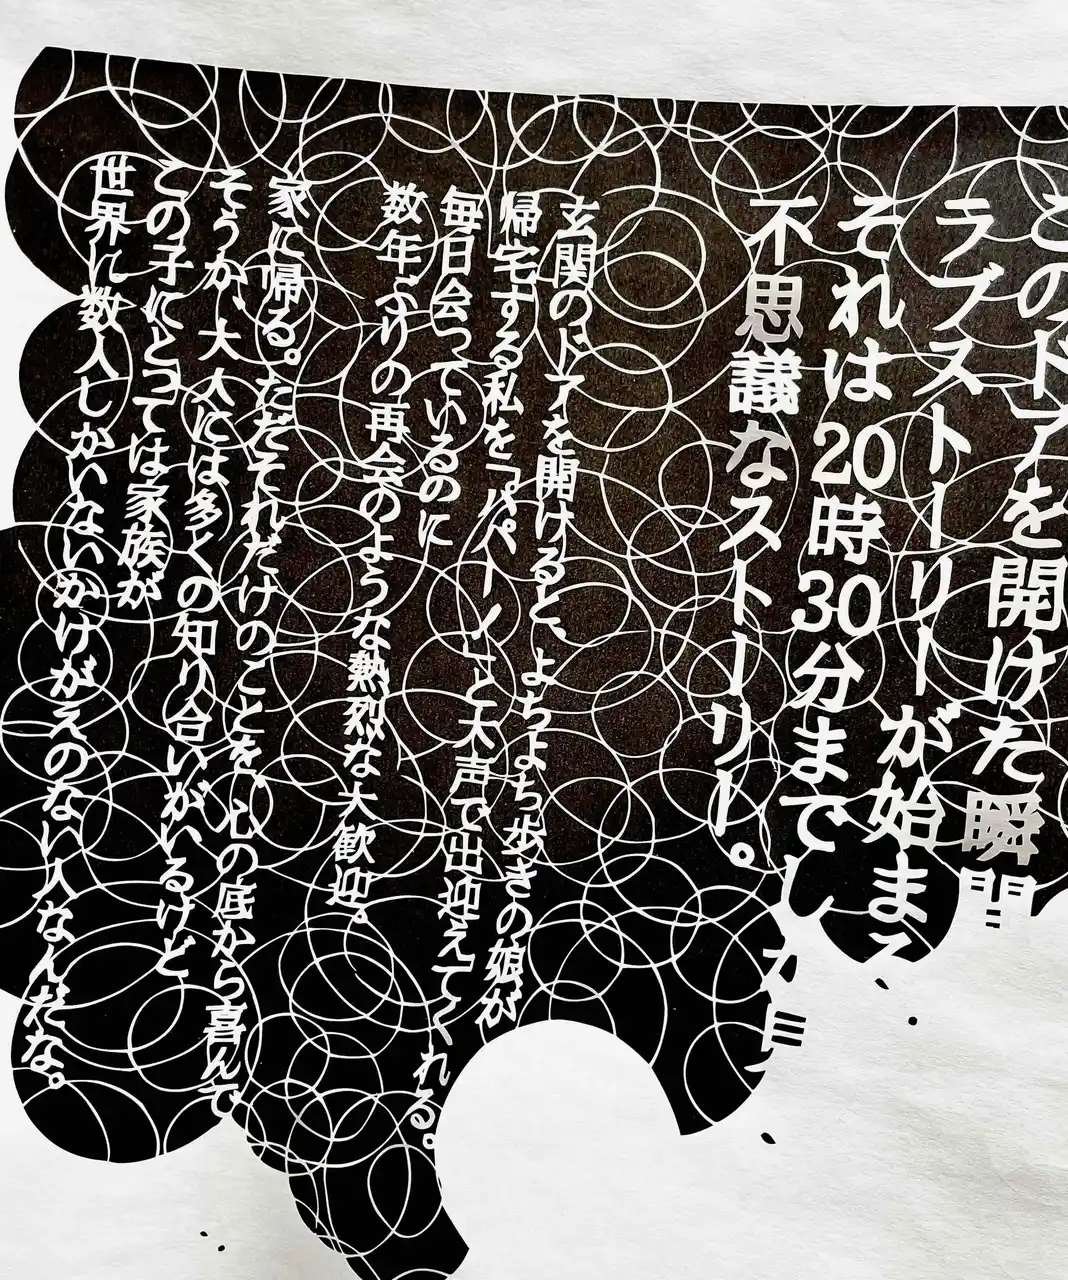 このドアを開けた瞬間
ラブストーリーが始まる
それは20時30分までし
不思議なストーリー。
玄関のドアを開けると、よちよち歩きの娘が
帰宅する私を「パパー！」と大声で出迎えてくれる。
毎日会っているのに
数年ぶりの再会のような熱烈な大歓迎。
家に帰る。ただそれだけのことを、心の底から喜んで
そうか、大人には多くの知り合いがいるけど
この子にとっては家族が
世界に数人しかいないかけがえのない人なんだな。